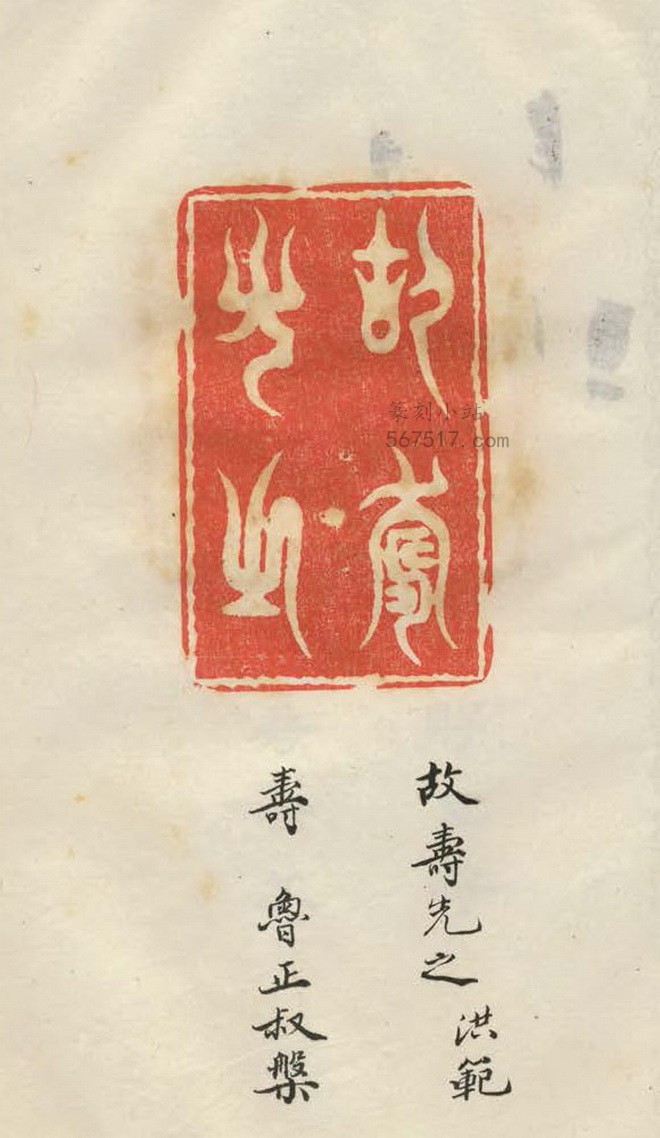 故壽
先之
篆刻小站
567517.com
故壽先之 洪範
壽 魯正叔槃